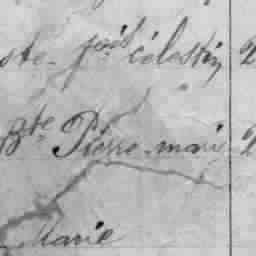 ste. josh célestin 2
Bte Pierre marie 2
Marie